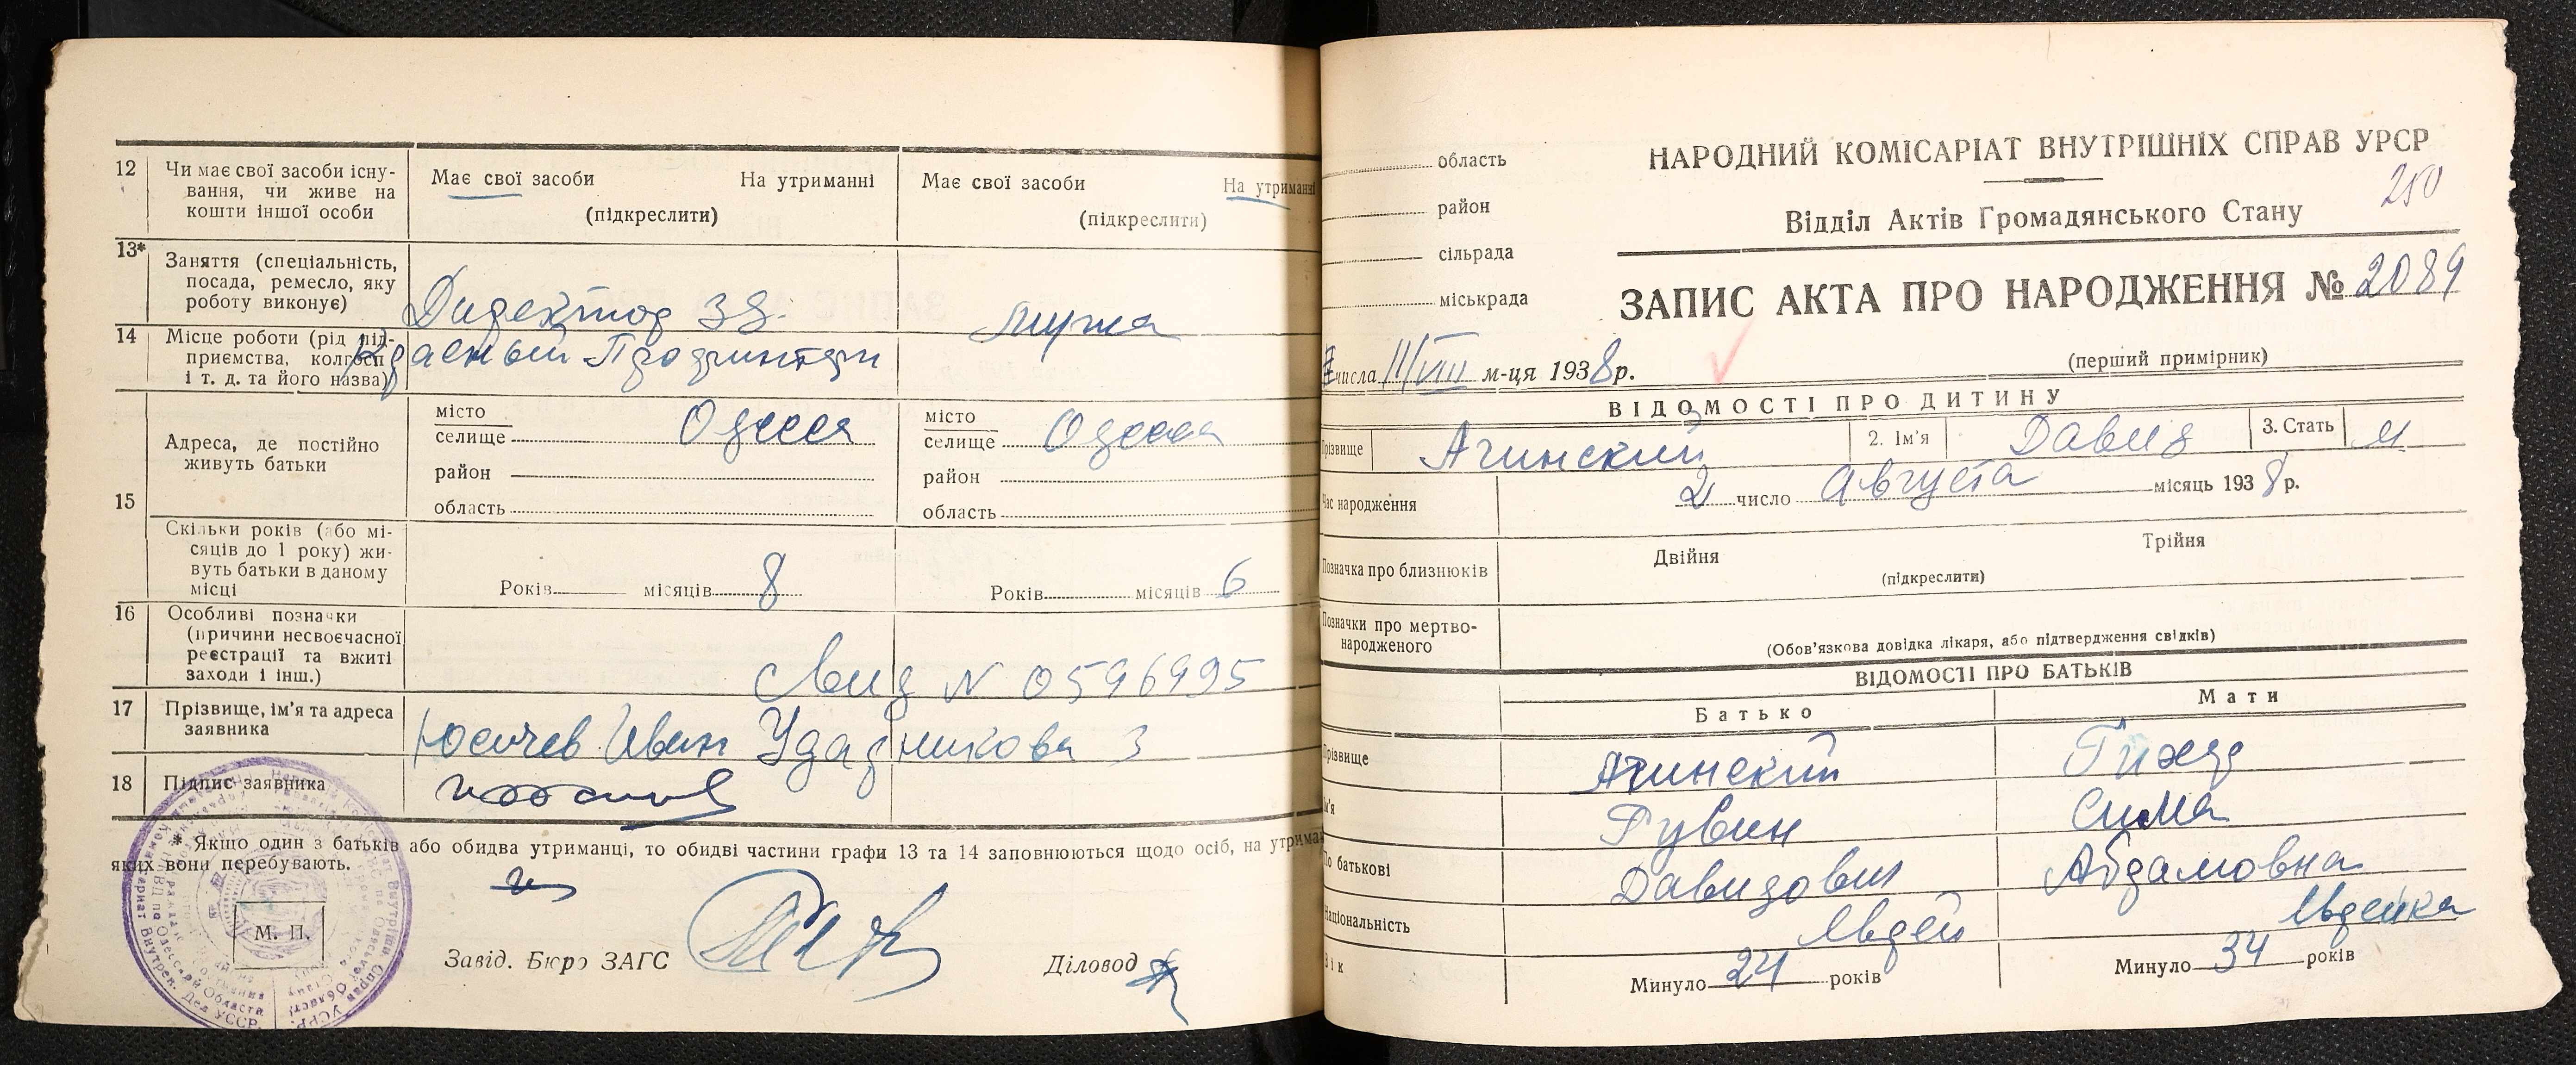 12 Чи має свої засоби існу-
вання, чи живе на
кошти іншої особи
Має свої засоби На утриманні
(підкреслити)
Має свої засоби На утриманні
(підкреслити)
13* Заняття (спеціальність,
посада, ремесло, яку
роботу виконує)
Директор
мужа
14 Місце роботи (рід під-
приємства, колгосп
і т. д. та його назва)
Красный Профинтерн
15 Адреса, де постійно
живуть батьки
місто
селище Одесса
район
область
місто
селище Одесса
район
область
Скільки років (або мі-
сяців до 1 року) жи-
вуть батьки в даному
місці
Років місяців 8
Років місяців 6
16 Особливі позначки
(причини несвоєчасної
реєстрації та вжиті
заходи і інш.)
Свид N 0596995
17 Прізвище, ім'я та адреса
заявника
Иван Ударникова 3
18 Підпис заявника
* Якщо один з батьків або обидва утриманці, то обидві частини графи 13 та 14 заповнюються щодо осіб, на
яких вони перебувають.
М. П.
Завід. Бюро ЗАГС
Діловод
область
район
сільрада
міськрада
НАРОДНИЙ КОМІСАРІАТ ВНУТРІШНІХ СПРАВ УРСР
250
Відділ Актів Громадянського Стану
ЗАПИС АКТА ПРО НАРОДЖЕННЯ № 2089
(перший примірник)
числа 11/VIII м-ця 1938 р.
ВІДОМОСТІ ПРО ДИТИНУ
Ачинский
2. Ім'я Давид
3. Стать м
народження 2 число Августа місяць 1938 р.
про близнюків
Двійня Трійня
(підкреслити)
про мертво-
народженого
(Обов'язкова довідка лікаря, або підтвердження свідків)
ВІДОМОСТІ ПРО БАТЬКІВ
Батько Мати
Ачинский
Рувин Сима
батькові Давидович Абрамовна
Еврей Еврейка
Минуло 24 років
Минуло 34 років